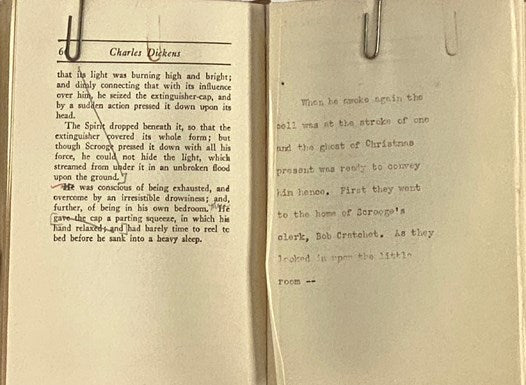 6
Charles Dickens
that its light was burning high and bright;
and dimly connecting that with its influence
over him, he seized the extinguisher-cap, and
by a sudden action pressed it down upon its
head.
The Spirit dropped beneath it, so that the
extinguisher covered its whole form; but
though Scrooge pressed it down with all his
force, he could not hide the light, which
streamed from under it in an unbroken flood
upon the ground.
He was conscious of being exhausted, and
overcome by an irresistible drowsiness; and,
further, of being in his own bedroom. He
gave the cap a parting squeeze, in which his
hand relaxed; and had barely time to reel to
bed before he sank into a heavy sleep.
When he awoke again the
bell was at the stroke of one
and the ghost of Christmas
present was ready to convey
him hence. First they went
to the home of Scrooge's
clerk, Bob Cratchet. As they
looked in upon the little
room --